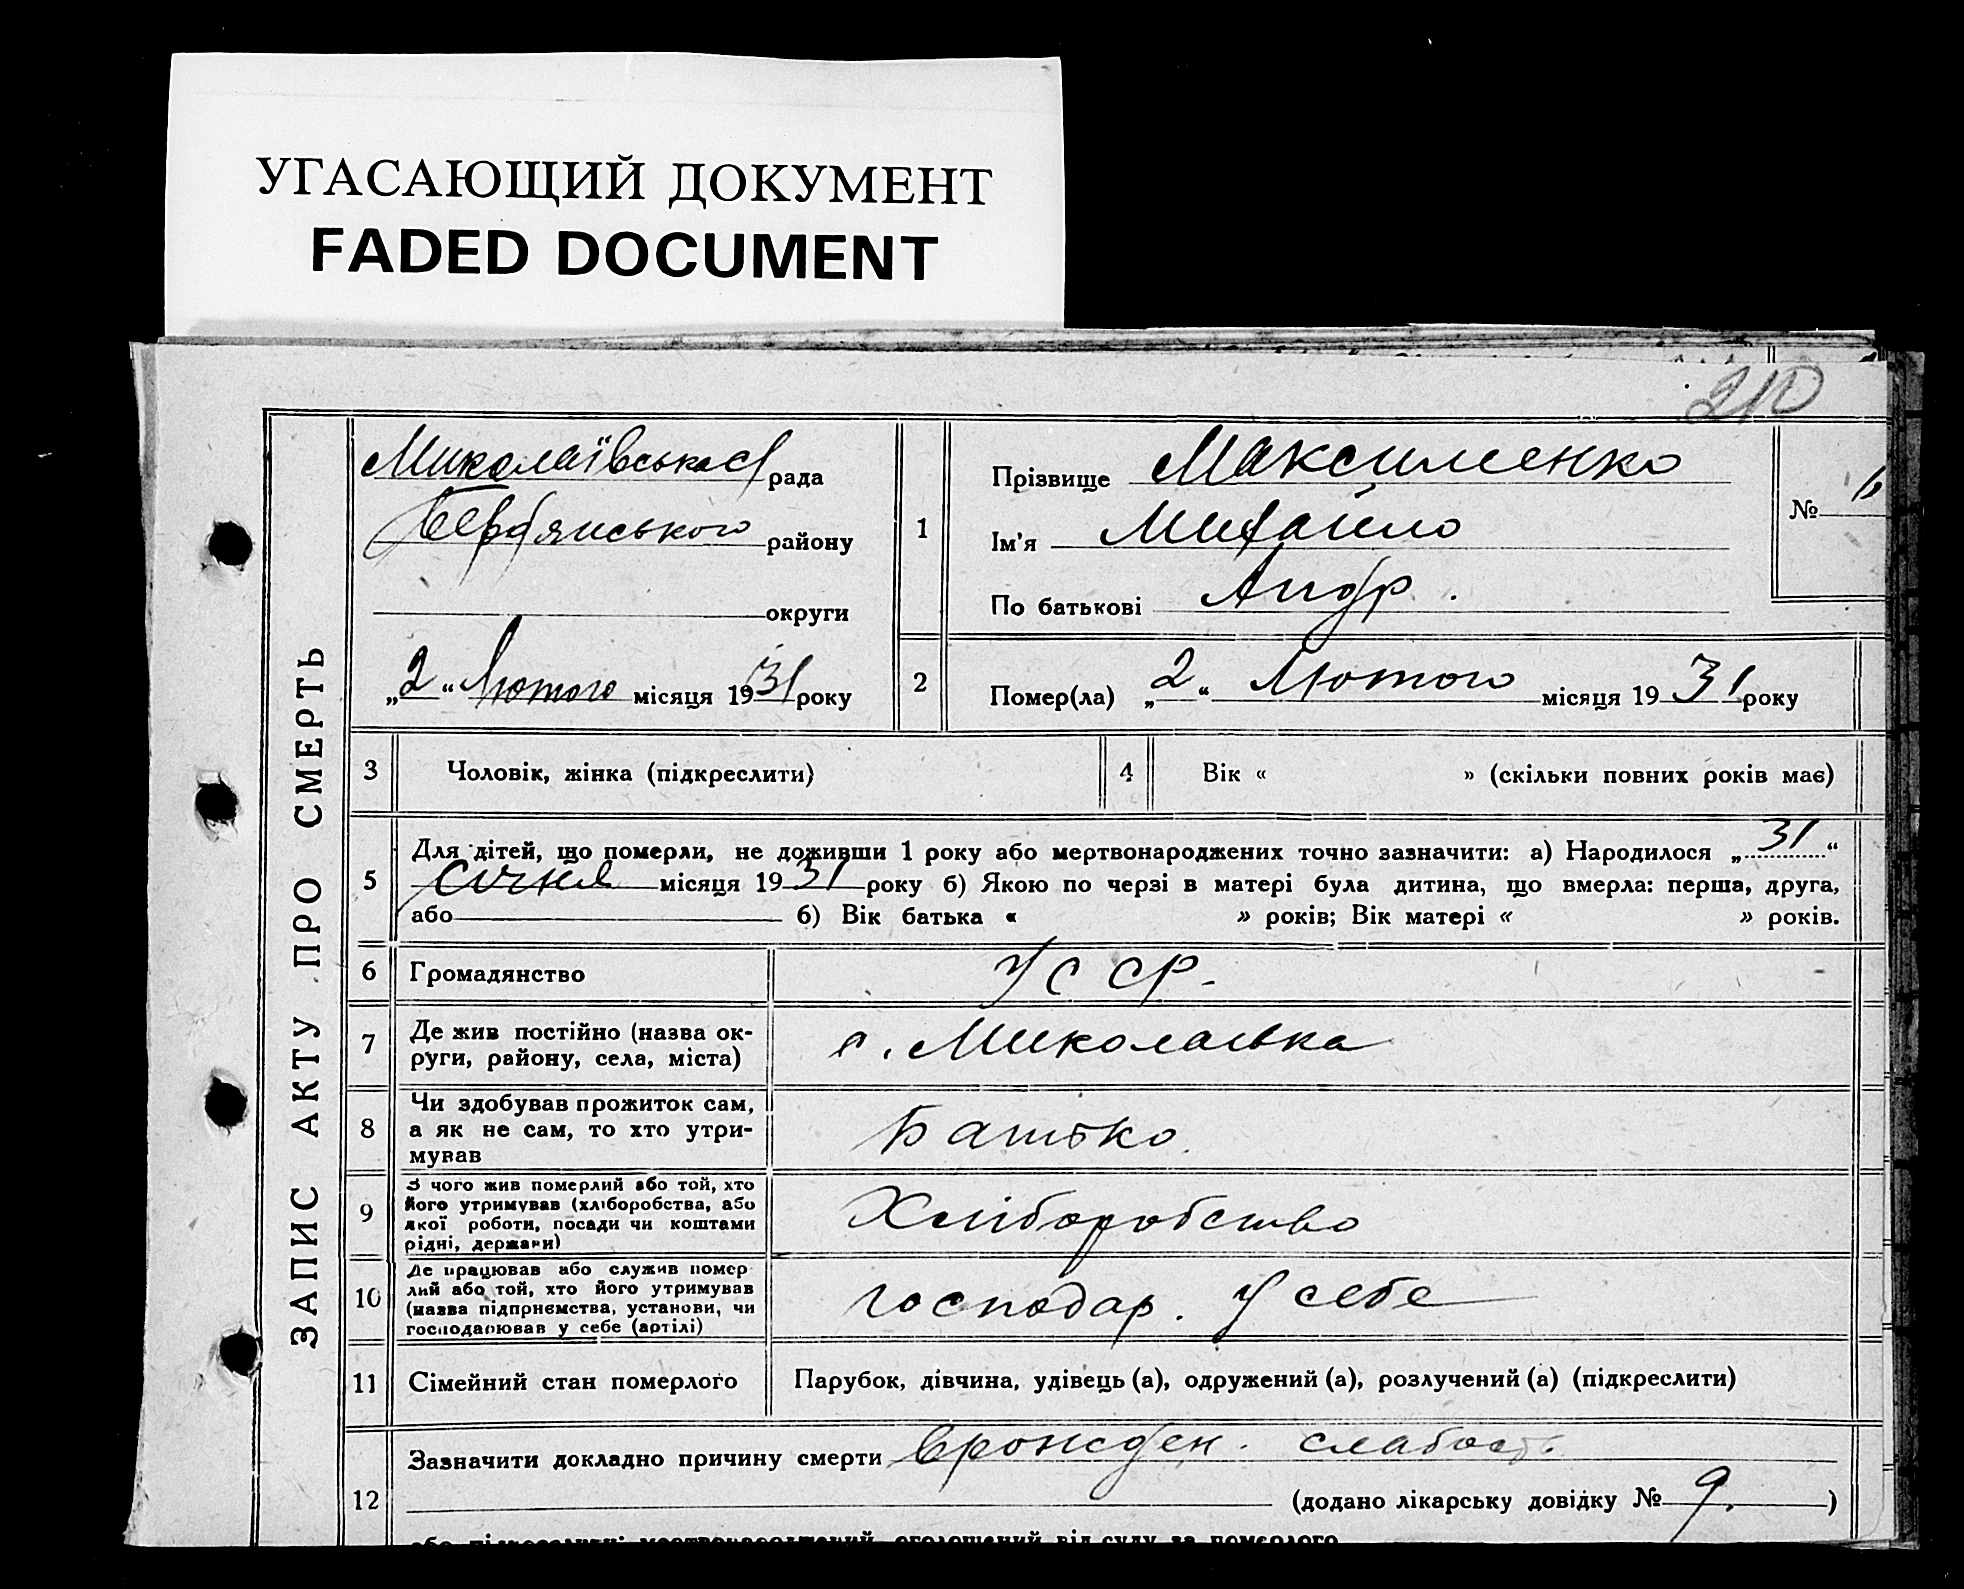 УГАСАЮЩИЙ ДОКУМЕНТ
FADED DOCUMENT
210
ЗАПИС АКТУ ПРО СМЕРТЬ
Миколаївська с/рада
Бердянського району
округи
„2“ Лютого місяця 1931 року
1
Прізвище Максименко
Ім'я Михайло
По батькові Андр.
№
2
Помер(ла) „2“ Лютого місяця 1931 року
3
Чоловік, жінка (підкреслити)
4
Вік « » (скільки повних років має)
5
Для дітей, що померли, не доживши 1 року або мертвонароджених точно зазначити: а) Народилося „31“
Січня місяця 1931 року б) Якою по черзі в матері була дитина, що вмерла: перша, друга,
або б) Вік батька « » років; Вік матері « » років.
6
Громадянство
УССР.
7
Де жив постійно (назва ок-
руги, району, села, міста)
с. Миколаївка
8
Чи здобував прожиток сам,
а як не сам, то хто утри-
мував
Батько
9
З чого жив померлий або той, хто
його утримував (хліборобства, або
якої роботи, посади чи коштами
рідні, держави)
Хліборобство
10
Де працював або служив помер
лий або той, хто його утримував
(назва підприємства, установи, чи
господарював у себе (артілі)
господар. у себе
11
Сімейний стан померлого
Парубок, дівчина, удівець (а), одружений (а), розлучений (а) (підкреслити)
12
Зазначити докладно причину смерти врожден. слабость
(додано лікарську довідку № 9.)
або підкреслити: мертвонароджений, оголошений від суду за померлого